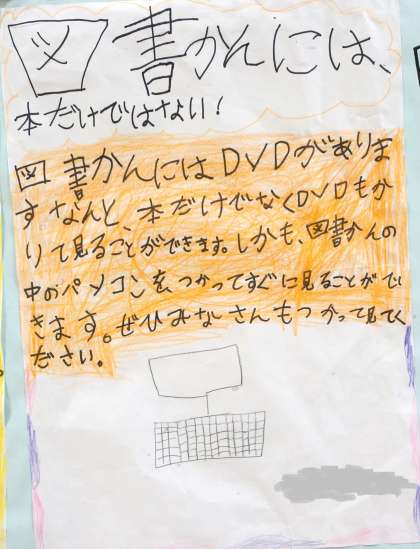 図書かんには、
本だけではない！
図書かんにはDVDがありま
すなんと、本だけでなくDVDもか
りて見ることができます。しかも、図書かんの
中のパソコンをつかってすぐに見ることがで
きます。ぜひみなさんもつかって見てく
ださい。